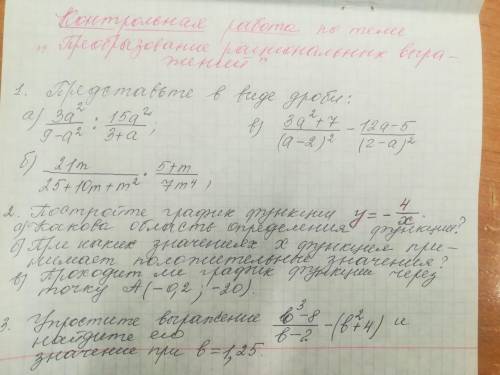 Контрольная работа по теме
„Преобразование рациональных выра-
жений"
1. Представьте в виде дроби:
а) 3a²/(9-a²) : 15a²/(3+a); в) (3a²+7)/(a-2)² - (12a-5)/(2-a)²
б) 21m/(25+10m+m²) · (5+m)/(7m⁴);
2. Постройте график функции y = -4/x.
а) Какова область определения функции?
б) При каких значениях x функция при-
нимает положительные значения?
в) Проходит ли график функции через
точку A(-0,2; -20).
3. Упростите выражение (b³-8)/(b-2) - (b²+4) и
найдите его
значение при b=1,25.